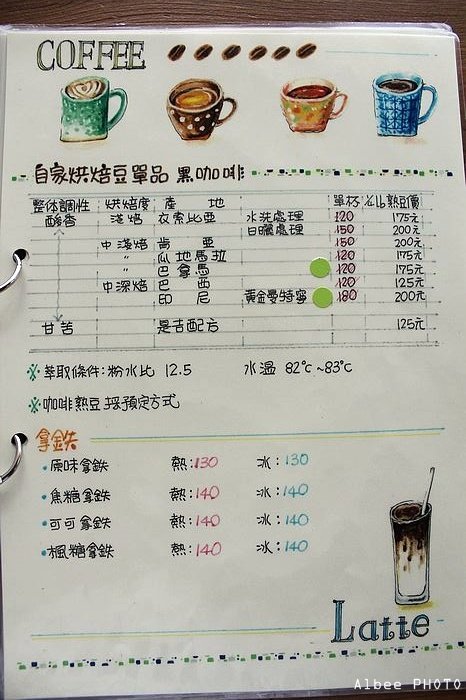 COFFEE
自家烘焙豆單品 黑咖啡
整体調性 烘焙度 產 地 單杯 ½比熟豆價
酸香 淺焙 衣索比亞 水洗處理 120 175元
日曬處理 150 200元
中淺焙 肯 亞 150 200元
〃 瓜地馬拉 120 175元
〃 巴拿馬 120 175元
中深焙 巴 西 120 125元
印 尼 黃金曼特寧 180 200元
甘苦 是吉配方 125元
※ 萃取條件:粉水比 12.5 水溫 82℃~83℃
※ 咖啡熟豆採預定方式
拿鉄
•原味拿鉄 熱:130 冰:130
•焦糖拿鉄 熱:140 冰:140
•可可拿鉄 熱:140 冰:140
•楓糖拿鉄 熱:140 冰:140
Latte
Albee PHOTO